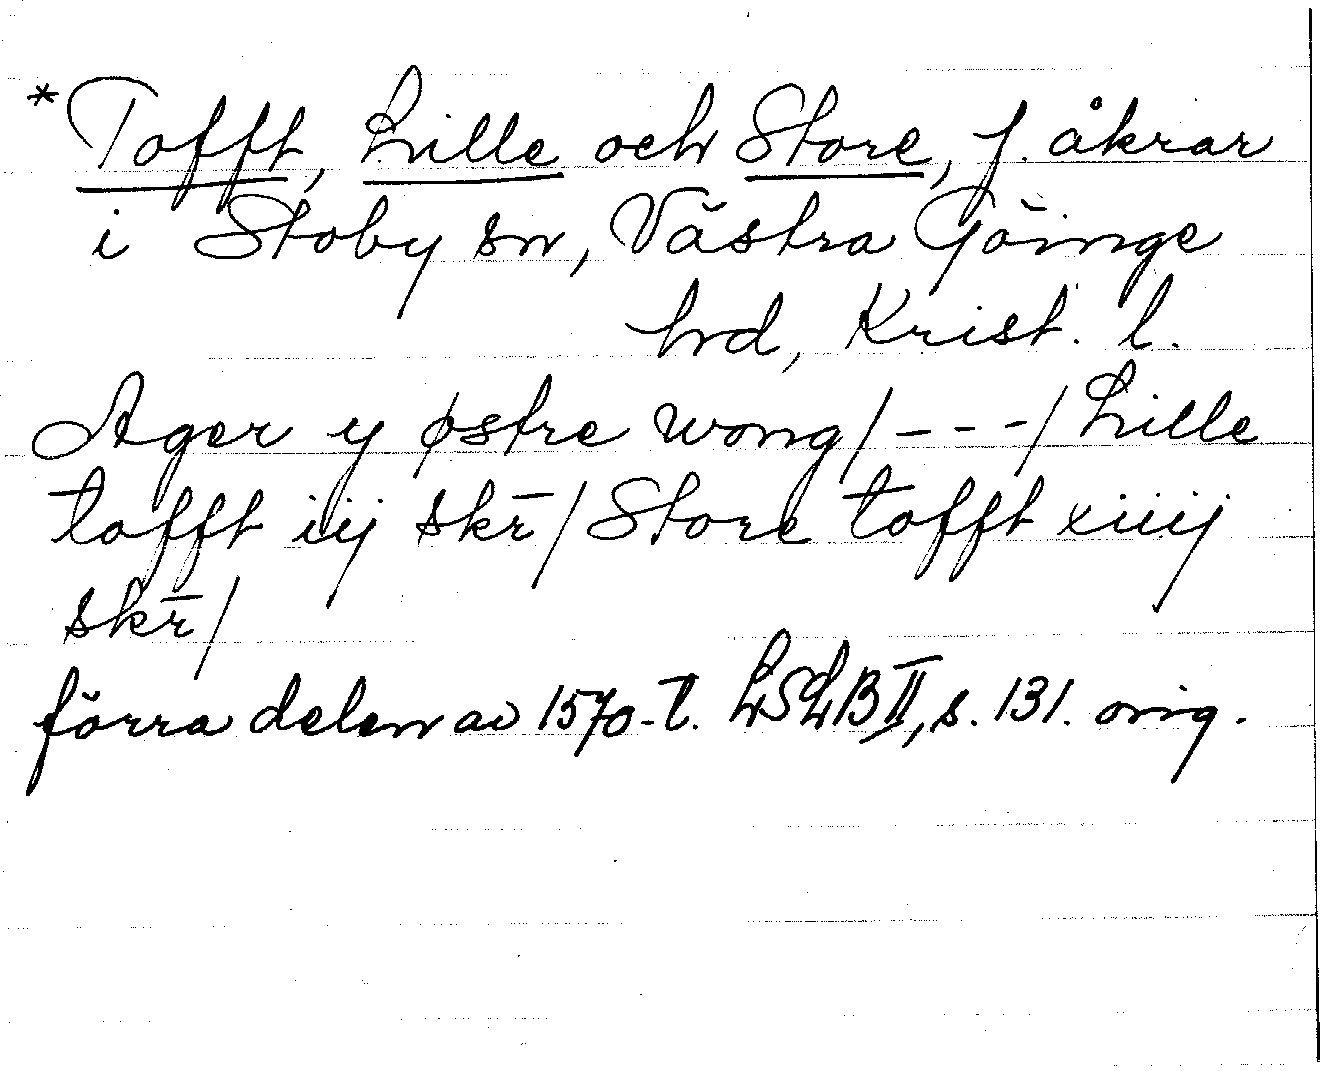 *Tofft, Lille och Store, f. åkrar
i Stoby sn, Västra Göinge
hrd, Krist. l.
Ager y østre wong/---/Lille
tofft iij skr̄/Store tofft xiiij
skr̄/
förra delen av 1570-t. LSLB II, s. 131. orig.